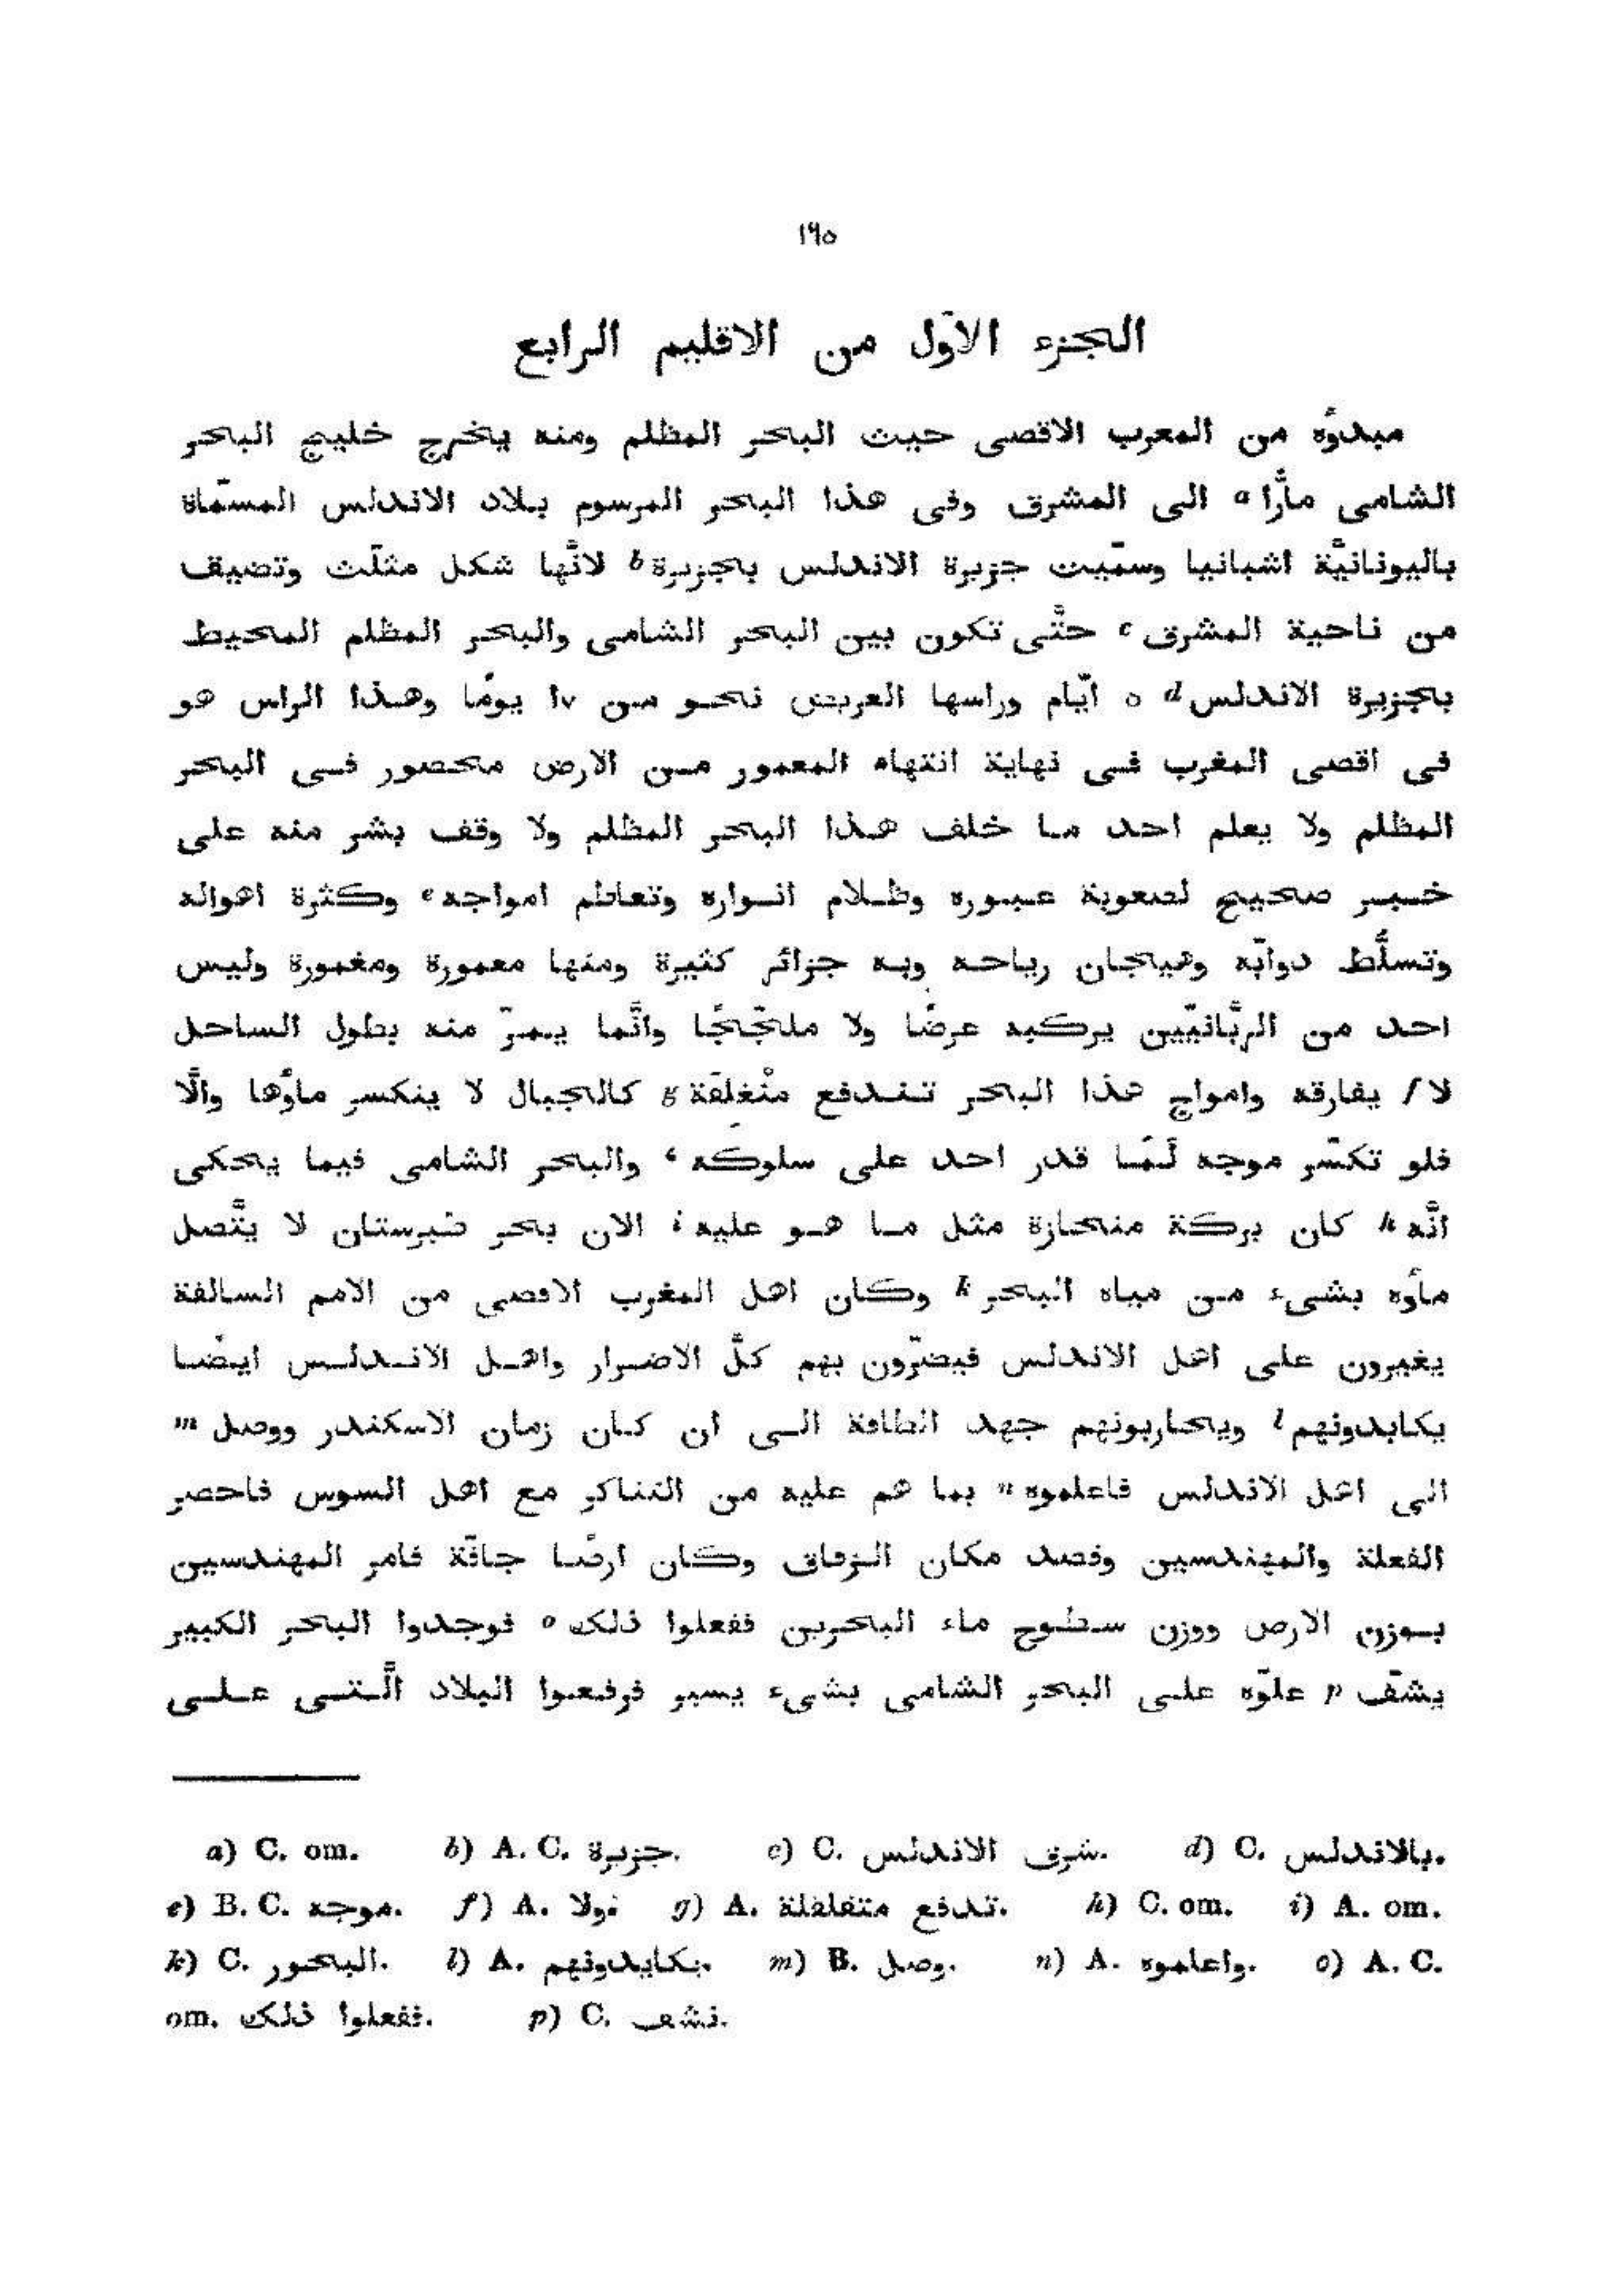 ١٩٥
الجزء الاوّل من الاقليم الرابع
مبدوُه من المعرب الاقصى حيث البحر المظلم ومنه يخرج خليج البحر
الشامى مارًّا a الى المشرق وفى هذا البحر المرسوم بلاد الاندلس المسمّاة
باليونانيّة اشبانيا وسمّيت جزيرة الاندلس بجزيرة b لانّها شكل مثلّث وتضيف
من ناحية المشرق c حتّى تكون بين البحر الشامى والبحر المظلم المحيط
بجزيرة الاندلس d ٥ ايّام وراسها العريض نحو من ١٧ يومًا وهذا الراس هو
فى اقصى المغرب فى نهاية انتهاء المعمور من الارض محصور فى البحر
المظلم ولا يعلم احد ما خلف هذا البحر المظلم ولا وقف بشر منه على
خبر صحيح لصعوبة عبوره وظلام انواره وتعاظم امواجه e وكثرة اهواله
وتسلُّط دوابّه وهيجان رياحه وبه جزائر كثيرة ومنها معمورة ومغمورة وليس
احد من الربّانيّين يركبه عرضًا ولا ملجّجًا وانّما يمرّ منه بطول الساحل
لا f يفارقه وامواج هذا البحر تندفع منْغلقَة g كالجبال لا ينكسر ماوُها والّا
فلو تكسّر موجه لَمَا قدر احد على سلوكه ، والبحر الشامى فيما يحكى
انّه h كان بركة منحازة مثل ما هو عليه i الان بحر طبرستان لا يتّصل
ماوُه بشىء من مياه البحر k وكان اهل المغرب الاقصى من الامم السالفة
يغيرون على اهل الاندلس فيضرّون بهم كلّ الاضرار واهل الاندلس ايضًا
يكابدونهم l ويحاربونهم جهد الطاقة الى ان كان زمان الاسكندر ووصل m
الى اهل الاندلس فاعلموه n بما هم عليه من التناكر مع اهل السوس فاحضر
الفعلة والمهندسين وقصد مكان الزقاق وكان ارضًا جافّة فامر المهندسين
بوزن الارض ووزن سطوح ماء البحرين ففعلوا ذلك o فوجدوا البحر الكبير
يشفّ p علوّه على البحر الشامى بشىء يسير فرفعوا البلاد الّتى على
a) C. om. b) A. C. جزيرة. c) C. شرق الاندلس. d) C. بالاندلس.
e) B. C. موجه. f) A. فولا g) A. تدفع متغلغلة. h) C. om. i) A. om.
k) C. البحور. l) A. بكايدونهم. m) B. وصل. n) A. واعلموه. o) A. C.
om. ففعلوا ذلك. p) C. نشف.